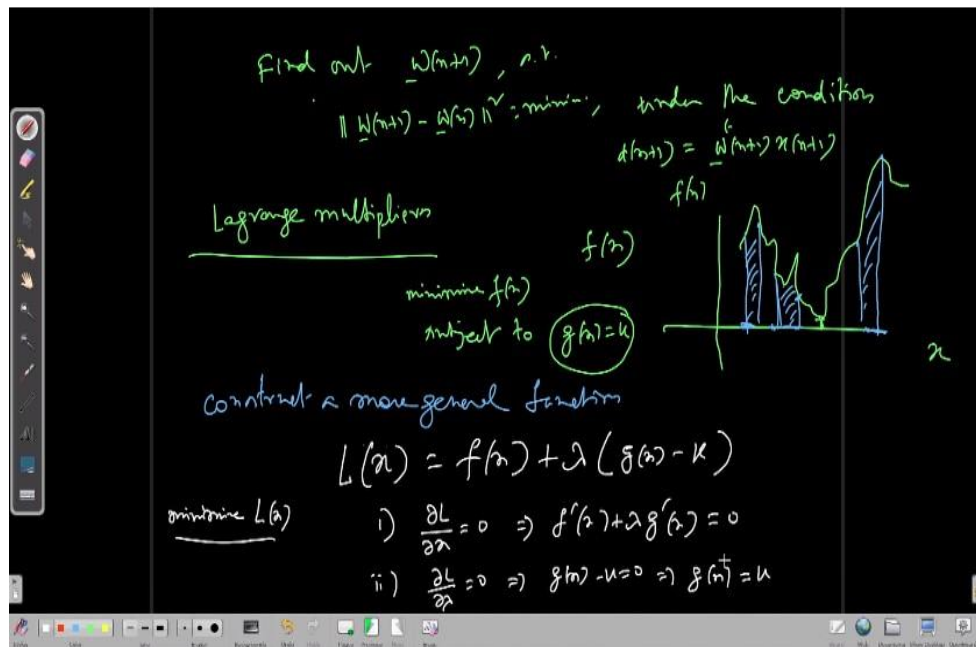 Find out w(n+1), s.t.
|| w(n+1) - w(n) ||² : minim., under the condition
d(n+1) = wᵗ(n+1) x(n+1)
f(x)
Lagrange multipliers
f(x)
minimize f(x)
subject to g(x)=k
x
construct a more general function
L(x) = f(x) + λ(g(x) - k)
minimize L(x)
i) ∂L/∂x = 0 ⇒ f'(x) + λg'(x) = 0
ii) ∂L/∂λ = 0 ⇒ g(x) - k = 0 ⇒ g(x) = k